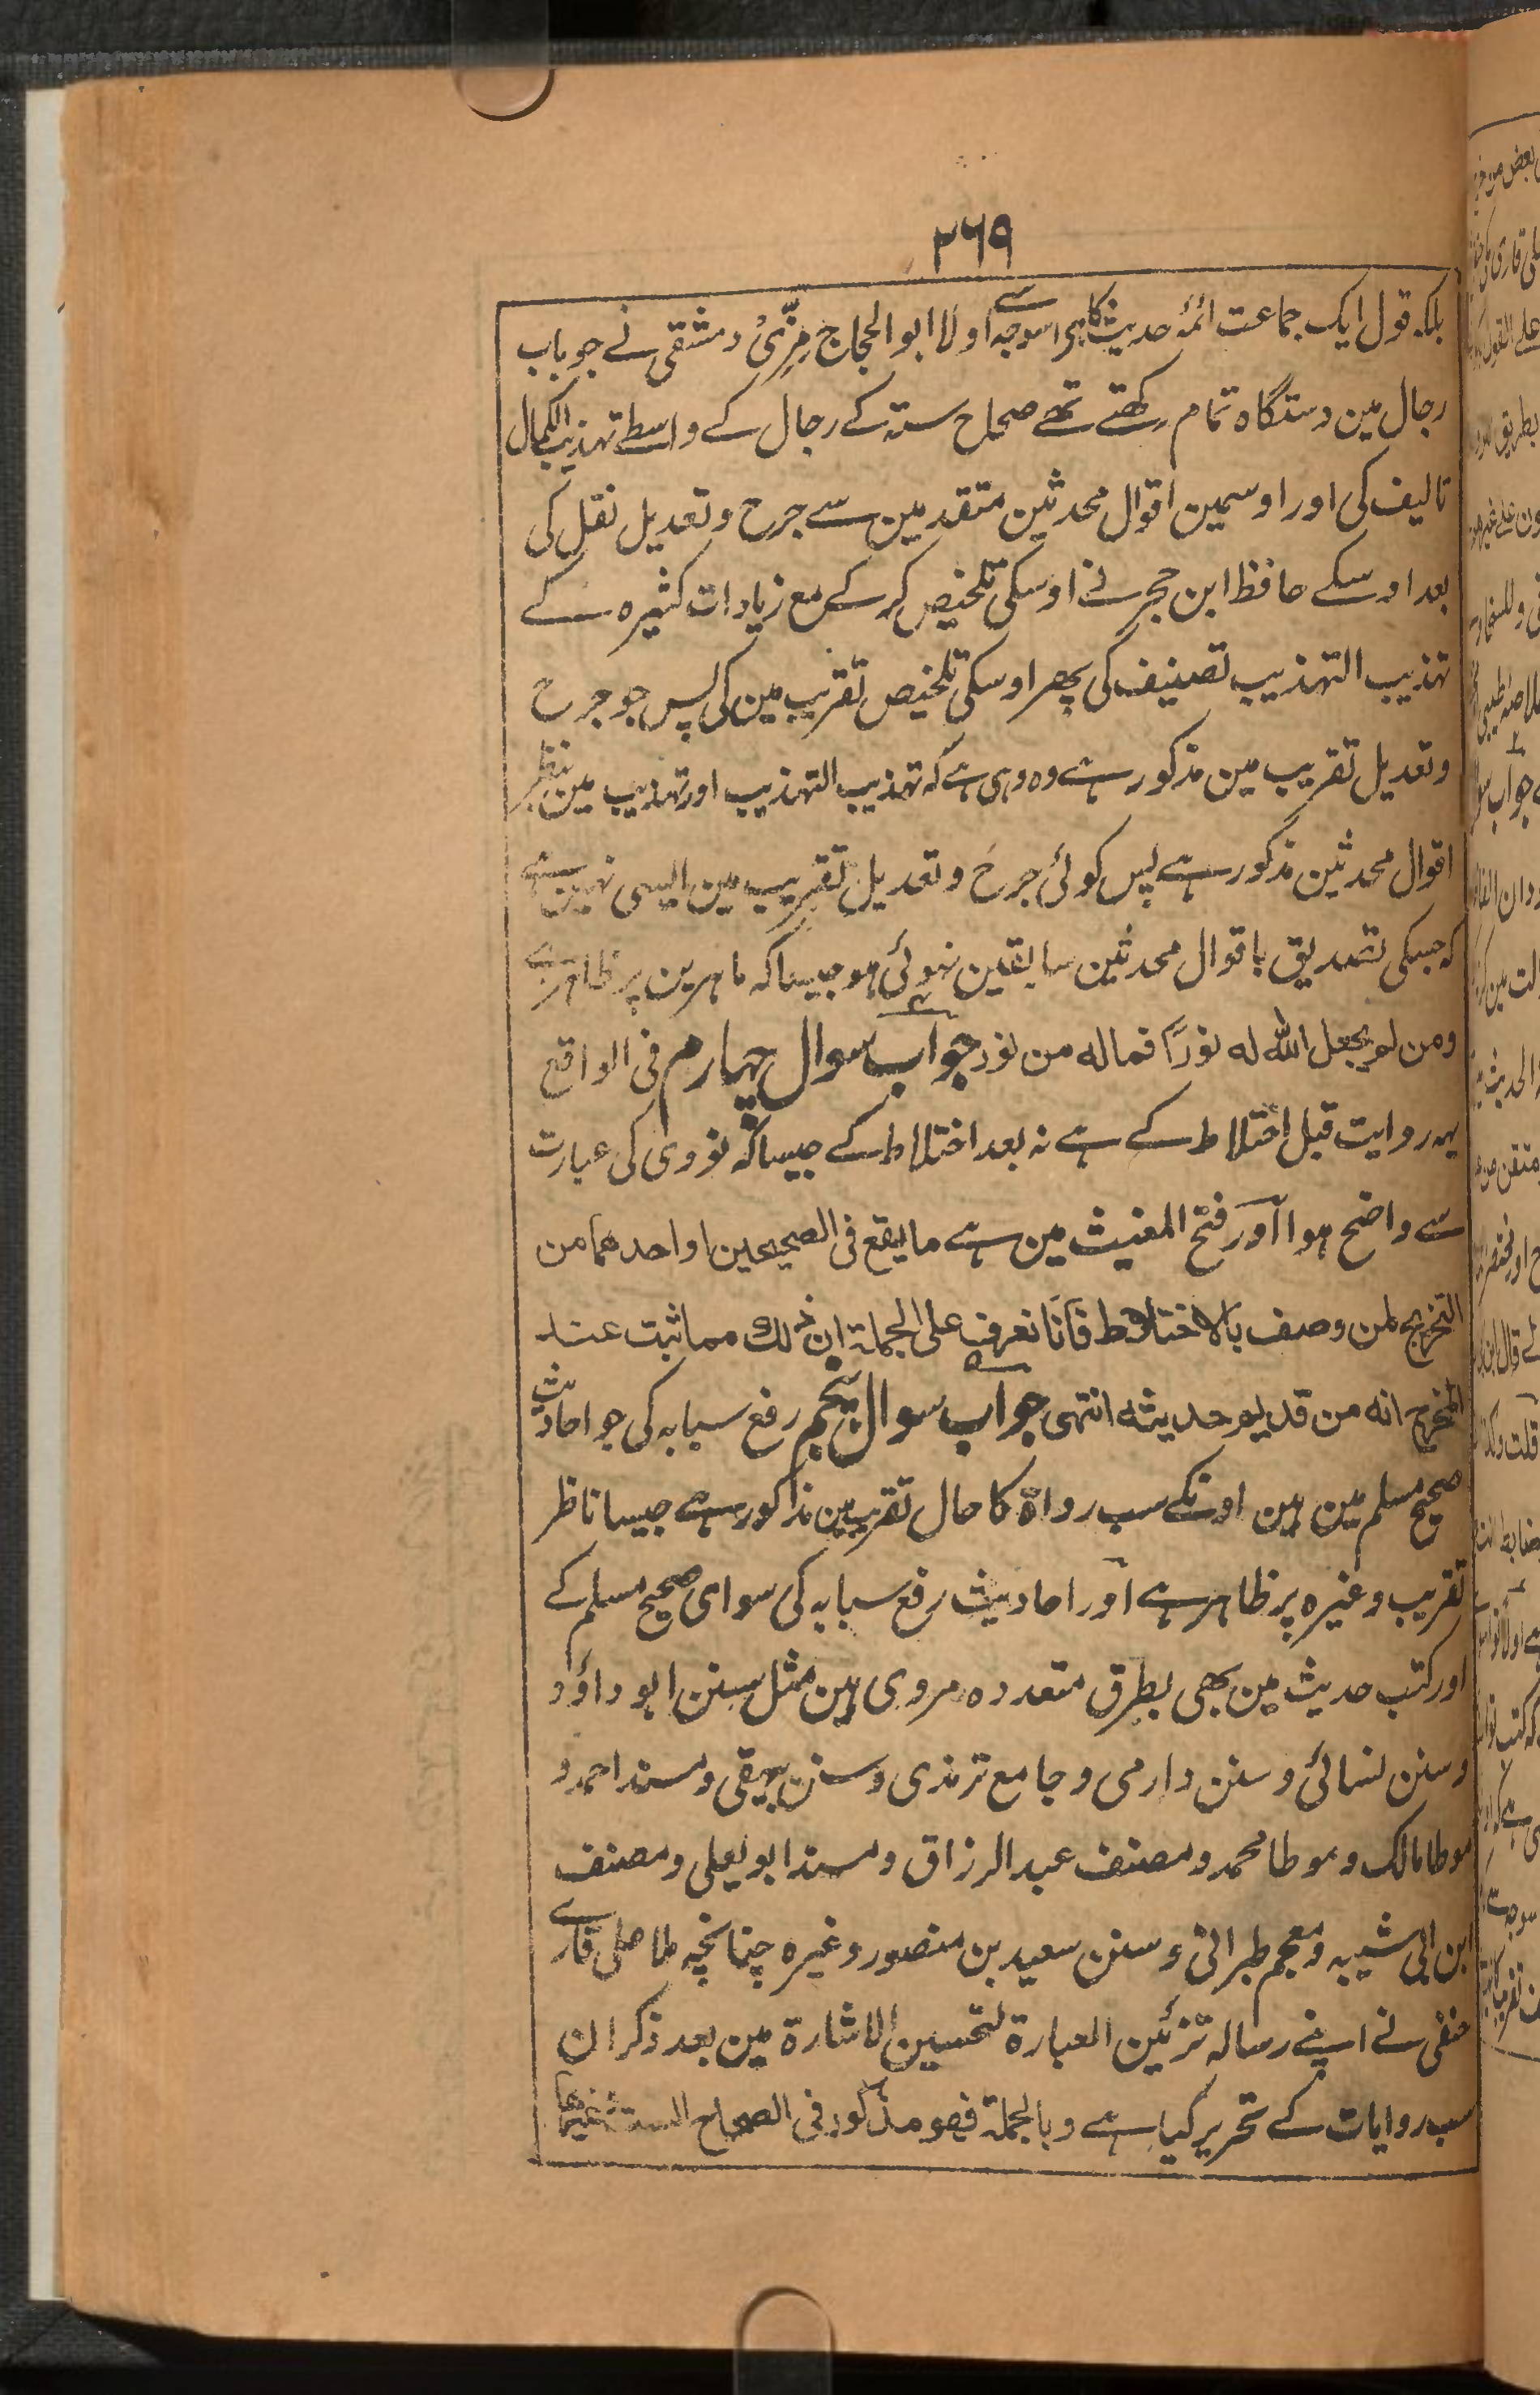 ۲۶۹
بلکہ قول ایک جماعت ائمۂ حدیث کا ہی اسوجہ سے اولا ابو الحجاج مِزّیُ دمشقی نے جو باب
رجال مین دستگاہ تمام رکھتے تھے صحاح ستہ کے رجال کے واسطے تہذیب الکمال
تالیف کی اور اوسمین اقوال محدثین متقدمین سے جرح و تعدیل نقل کی
بعد اوسکے حافظ ابن حجر نے اوسکی تلخیص کر کے مع زیادات کثیرہ کے
تہذیب التہذیب تصنیف کی پھر اوسکی تلخیص تقریب مین کی پس جو جرح
و تعدیل تقریب مین مذکور ہے وہ وہی ہے کہ تہذیب التہذیب اور تہذیب مین بنظر
اقوال محدثین مذکور ہے پس کوئی جرح و تعدیل تقریب مین ایسی نہین ہے
کہ جسکی تصدیق باقوال محدثین سابقین نہوئی ہو جیسا کہ ماہرین پر ظاہر ہے
ومن لم یجعل اللہ لہ نورًا فمالہ من نور جواب سوال چہارم فی الواقع
یہہ روایت قبل اختلاط کے ہے نہ بعد اختلاط کے جیسا کہ نووی کی عبارت
سے واضح ہوا اور فتح المغیث مین ہے ما یقع فی الصحیحین او احدھما من
التخریج لمن وصف بالاختلاط فانا نعرف علی الجملۃ ان ذلک مما ثبت عند
المخرج انہ من قدیم حدیثہ انتہی جواب سوال پنجم رفع سبابہ کی جو احادیث
صحیح مسلم مین ہین اونکے سب رواۃ کا حال تقریب مین مذکور ہے جیسا ناظر
تقریب وغیرہ پر ظاہر ہے اور احادیث رفع سبابہ کی سوای صحیح مسلم کے
اور کتب حدیث مین بھی بطرق متعددہ مروی ہین مثل سنن ابو داؤد
و سنن نسائی و سنن دارمی و جامع ترمذی و سنن بیہقی و مسند احمد و
موطا مالک و موطا محمد و مصنف عبد الرزاق و مسند ابو یعلی و مصنف
ابن ابی شیبہ و معجم طبرانی و سنن سعید بن منصور وغیرہ چنانچہ ملا علی قاری
حنفی نے اپنے رسالہ تزئین العبارۃ لتحسین الاشارۃ مین بعد ذکر ان
سب روایات کے تحریر کیا ہے وبالجملۃ فھو مذکور فی الصحاح الستۃ